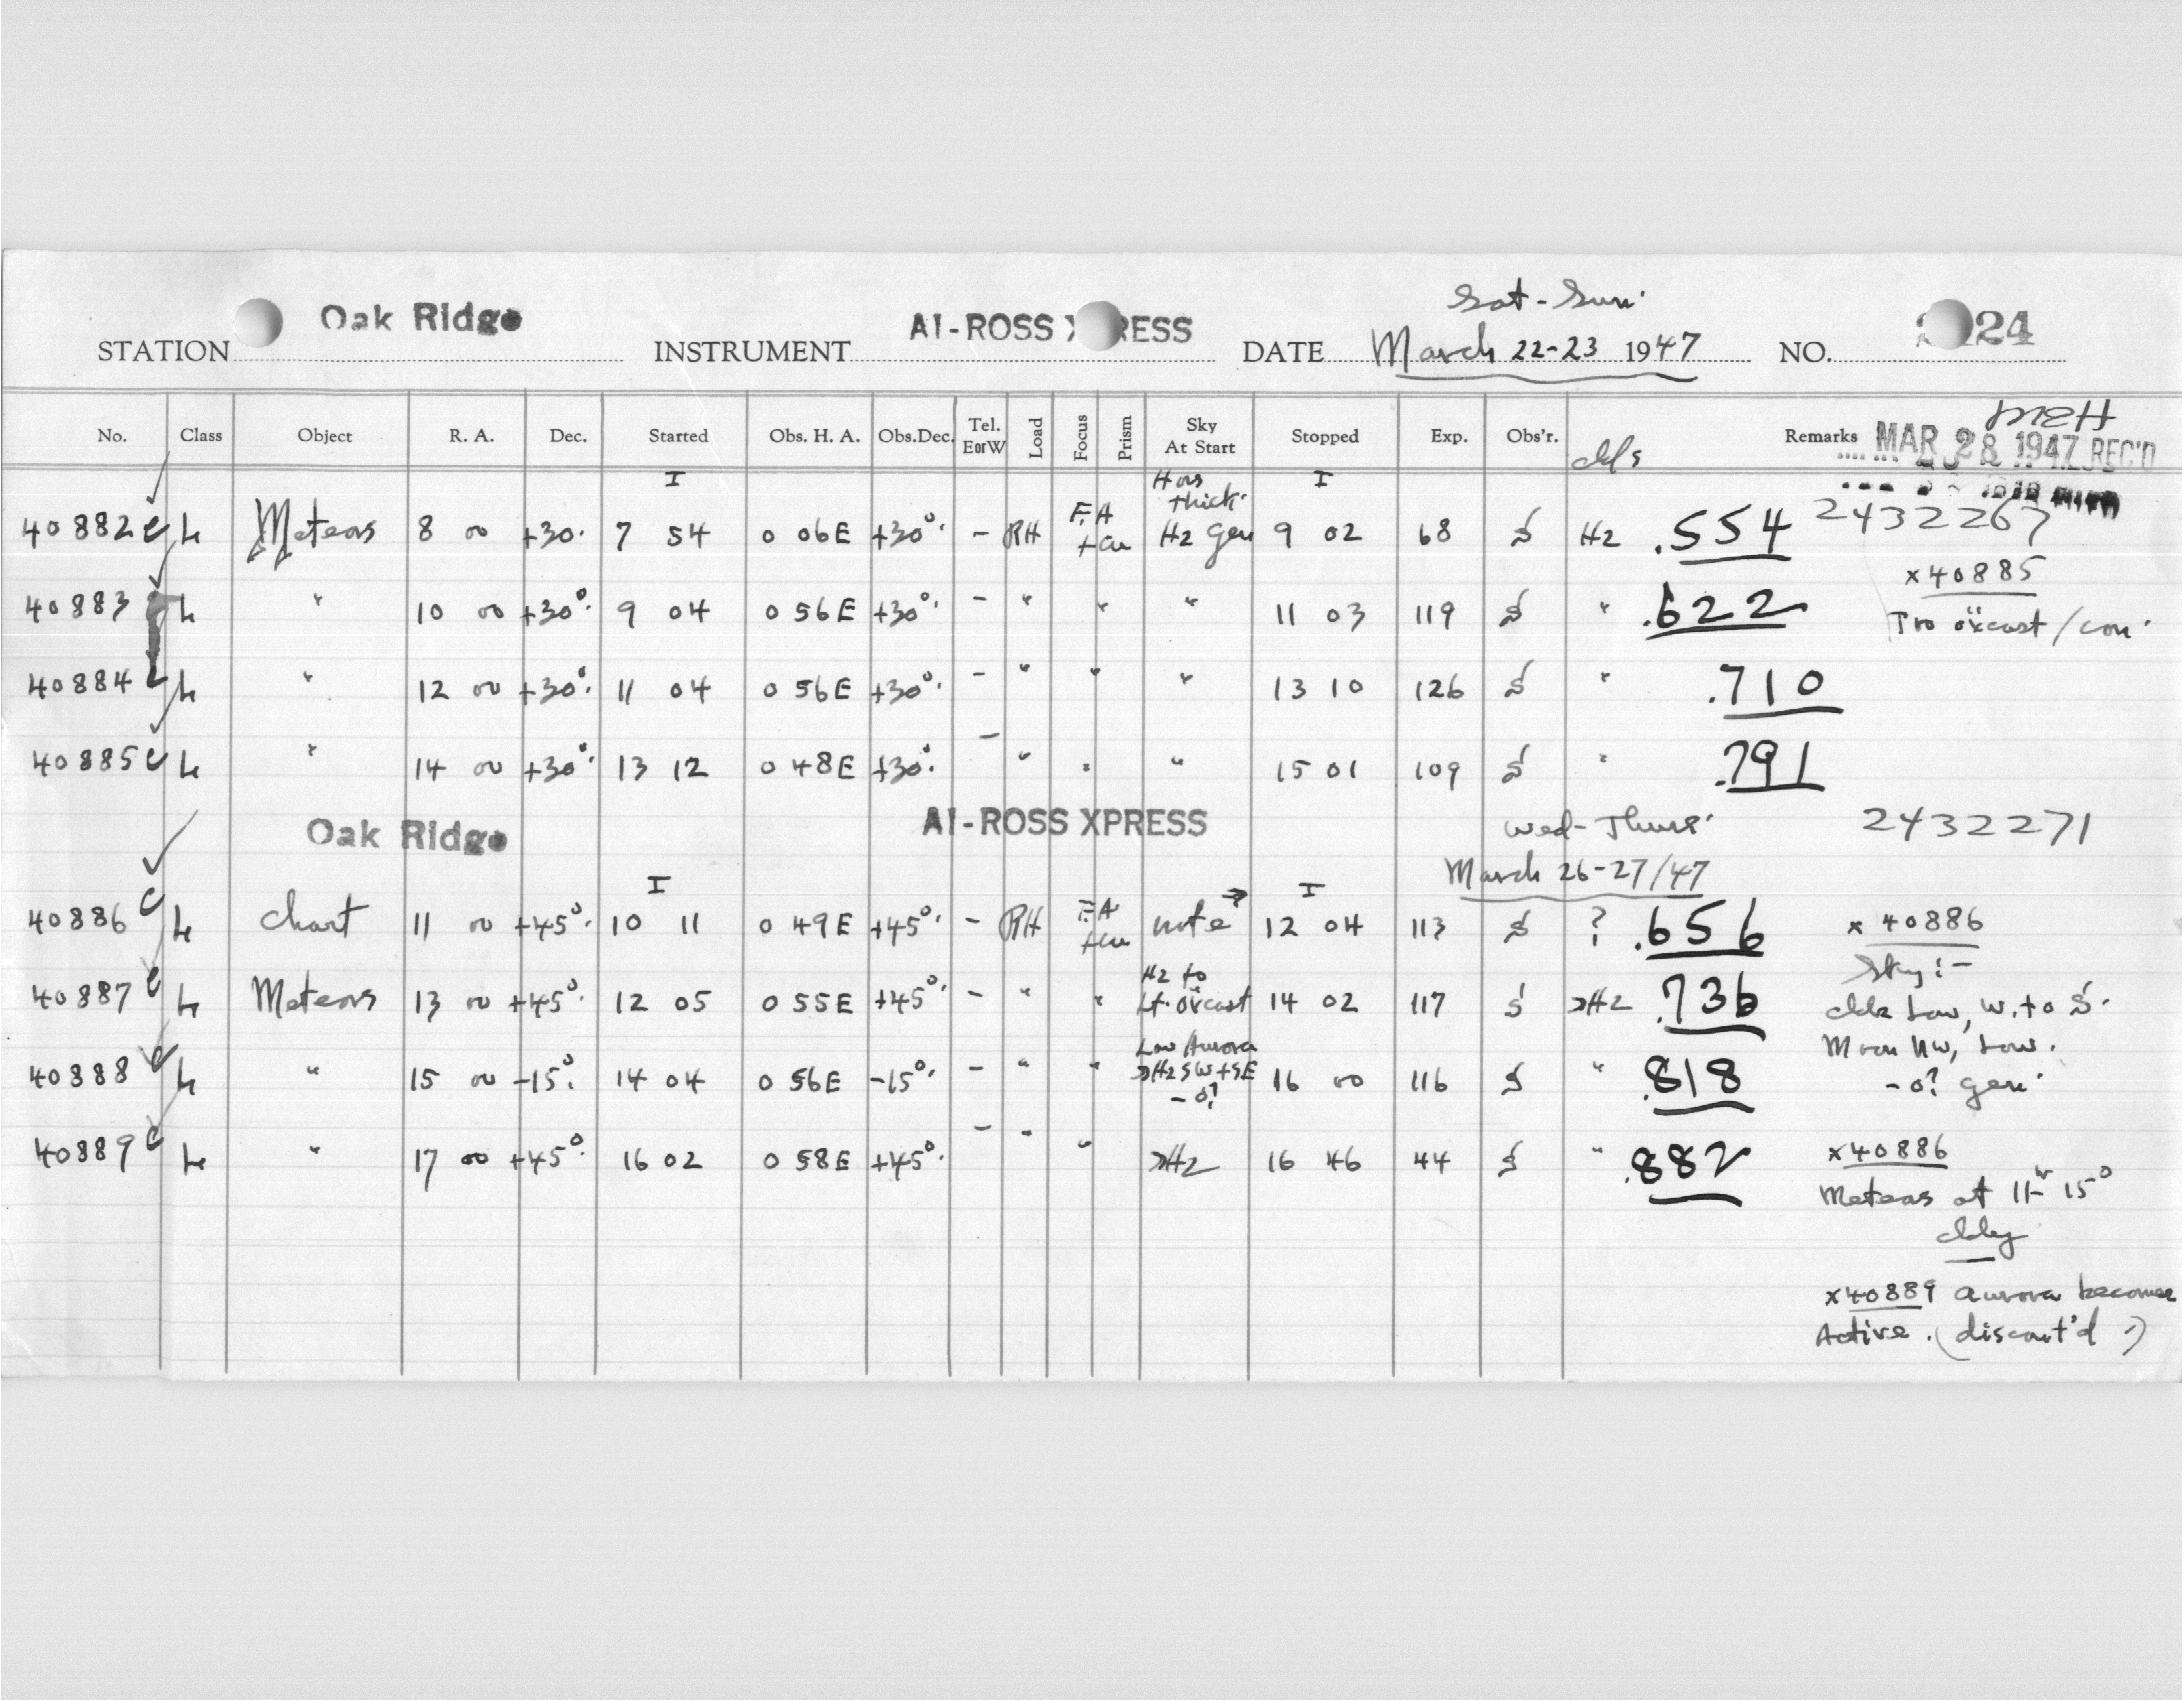 Sat - Sun.
STATION Oak Ridge INSTRUMENT AI-ROSS X RESS DATE March 22-23 1947 NO. 24
No. Class Object R. A. Dec. Started Obs. H. A. Obs.Dec. Tel. EorW Load Focus Prism Sky At Start Stopped Exp. Obs'r. clds Remarks MAR 28 1947 REC'D
I Hor. thick. I
40882 L Meteors 8 00 +30° 7 54 0 06E +30° - RH F.A H2 gen 9 02 68 S H2 .554 2432267
x40885
40883 L " 10 00 +30° 9 04 0 56E +30° - " " " 11 03 119 S " .622 Tro o'cast/con.
40884 L " 12 00 +30° 11 04 0 56E +30° - " " " 13 10 126 S " .710
40885 L " 14 00 +30° 13 12 0 48E +30° - " " " 15 01 109 S " .791
Oak Ridge AI-ROSS XPRESS Wed - Thurs. 2432271
March 26-27/47
I I
40886 L Chart 11 00 +45° 10 11 0 49E +45° - RH F.A note → 12 04 113 S ? .656 x 40886
Sky:-
40887 L Meteors 13 00 +45° 12 05 0 55E +45° - " " H2 to Lt. o'cast 14 02 117 S >H2 .736 clds Low, W. to S.
Moon NW, Low.
40888 L " 15 00 -15° 14 04 0 56E -15° - " " Low Aurora >H2 SW + SE - 0? 16 00 116 S " .818 - 0? gen.
40889 L " 17 00 +45° 16 02 0 58E +45° - " " >H2 16 46 44 S " .882 x40886
Meteors at 11h 15°
cldy
x40889 Aurora becomes
Active. (discont'd.)